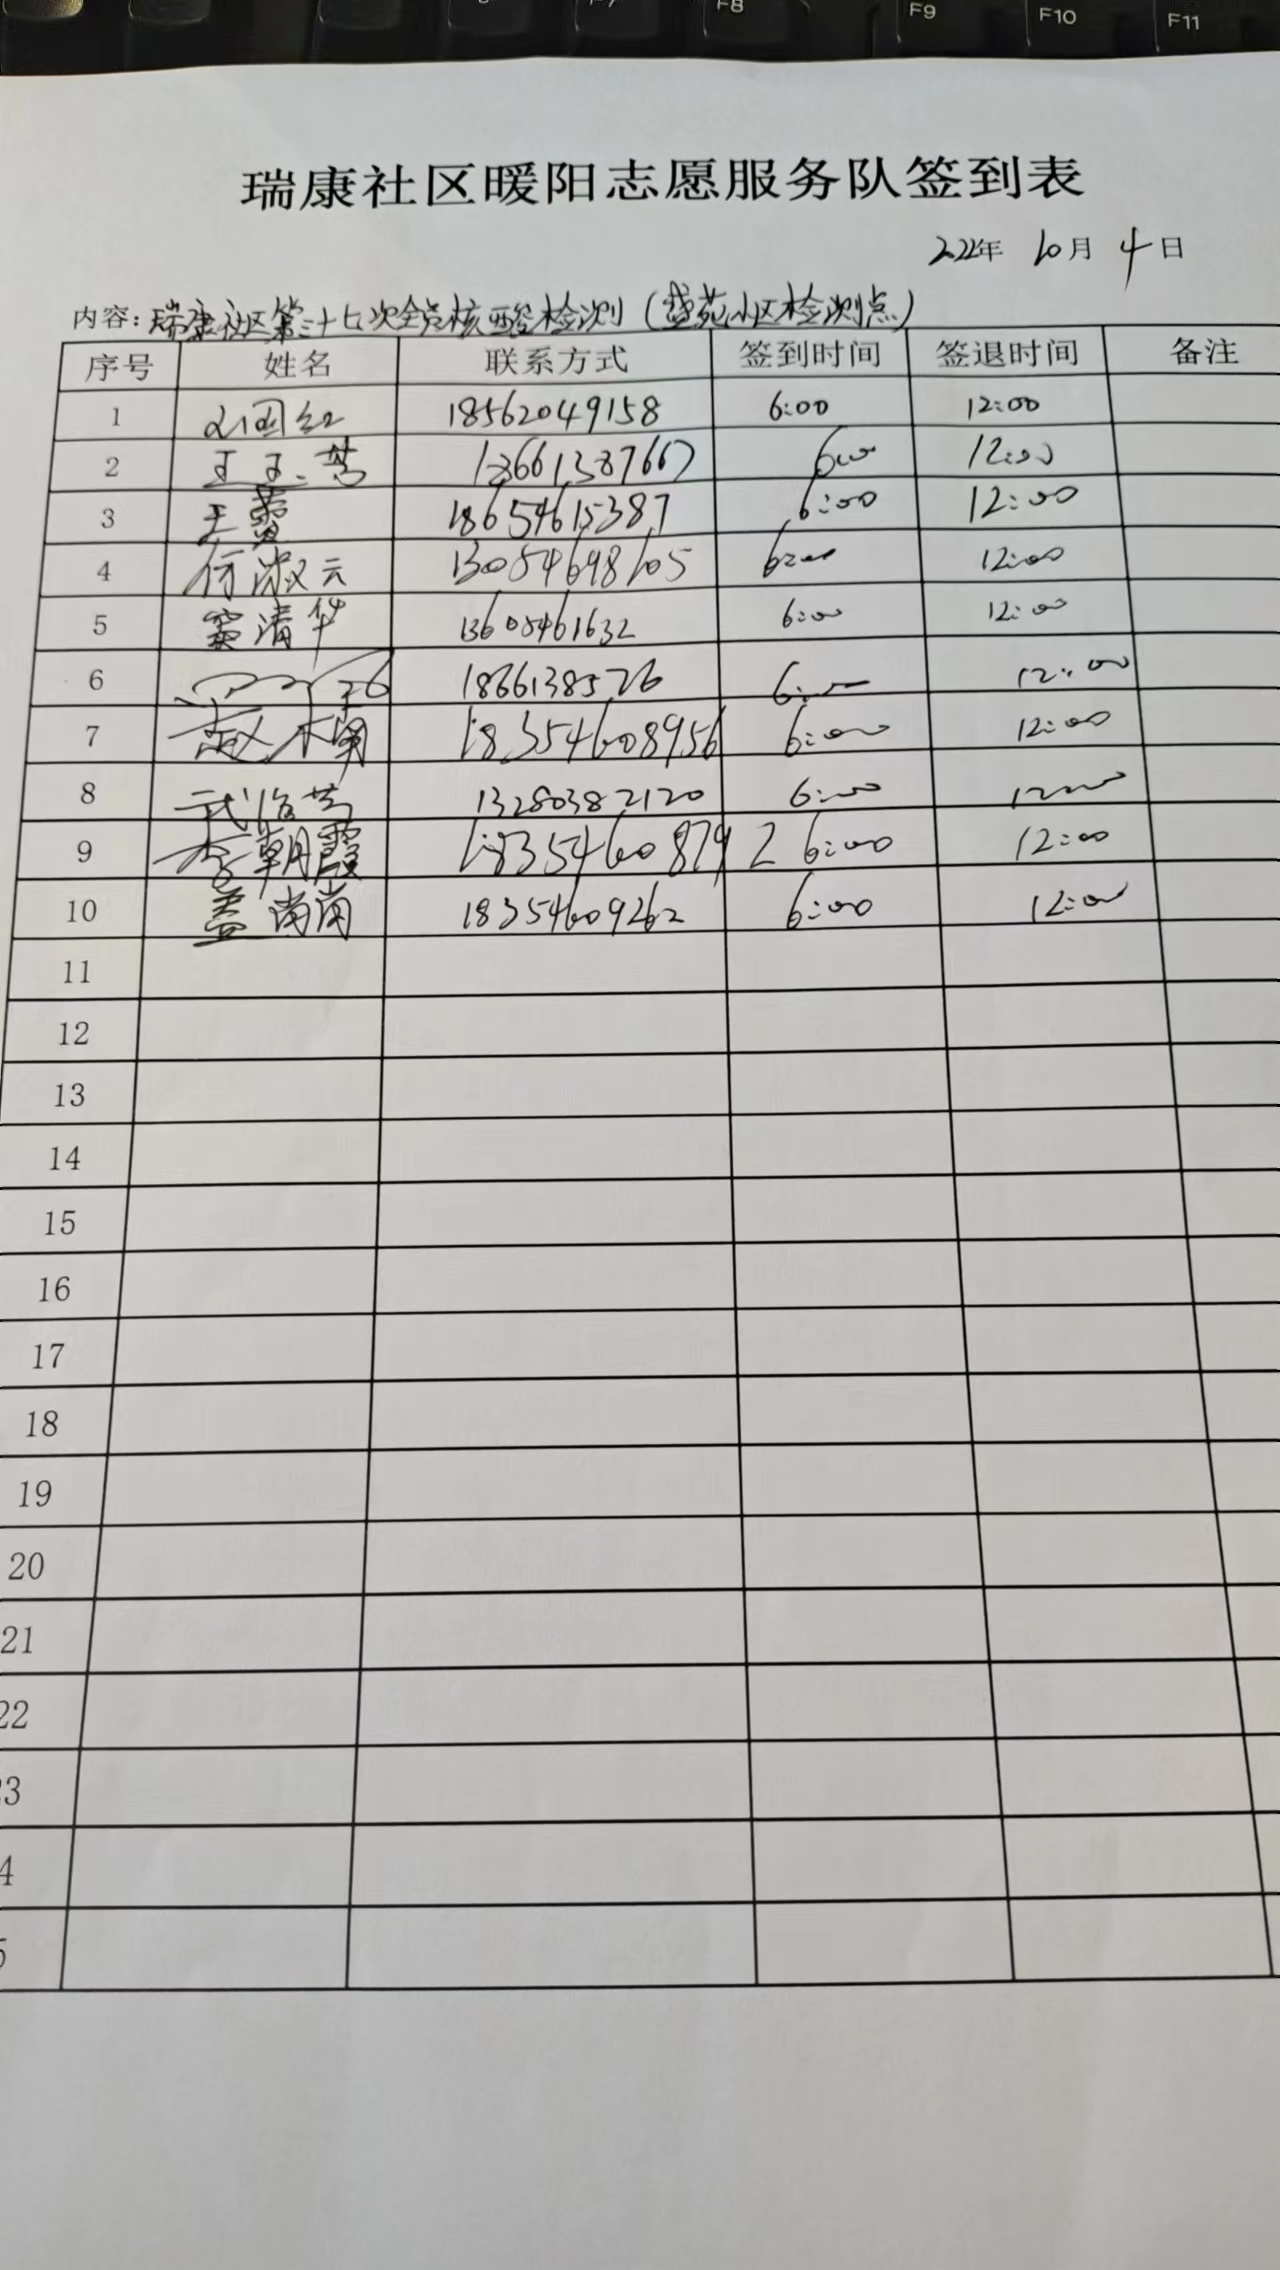 F8 F9 F10 F11
瑞康社区暖阳志愿服务队签到表
22年 10月 4日
内容：瑞康社区第三十七次全员核酸检测（盛苑小区检测点）
序号 姓名 联系方式 签到时间 签退时间 备注
1 刘国红 18562049158 6:00 12:00
2 王玉芳 13661387667 6:00 12:00
3 王 18654615387 6:00 12:00
4 何淑云 13054698105 6:00 12:00
5 窦清华 13605461632 6:00 12:00
6 1866138526 6:00 12:00
7 赵木湧 18354608956 6:00 12:00
8 武俗芳 13280382120 6:00 12:00
9 李朝霞 18354608792 6:00 12:00
10 盖尚尚 18354609262 6:00 12:00
11
12
13
14
15
16
17
18
19
20
21
22
23
4
5